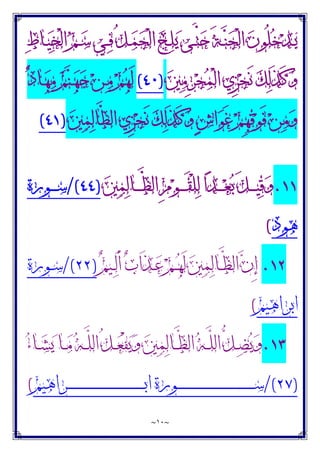 يَدْخُلُونَ الْجَنَّةَ حَتَّىٰ يَلِجَ الْجَمَلُ فِي سَمِّ الْخِيَاطِ
وَكَذَٰلِكَ نَجْزِي الْمُجْرِمِينَ (٤٠) لَهُم مِّن جَهَنَّمَ مِهَادٌ
وَمِن فَوْقِهِمْ غَوَاشٍ وَكَذَٰلِكَ نَجْزِي الظَّالِمِينَ (٤١)
١١. وَقِيلَ بُعْدًا لِّلْقَوْمِ الظَّالِمِينَ (٤٤)/سورة
هود)
١٢. إِنَّ الظَّالِمِينَ لَهُمْ عَذَابٌ أَلِيمٌ (٢٢)/سورة
ابراهيم)
١٣. وَيُضِلُّ اللَّهُ الظَّالِمِينَ وَيَفْعَلُ اللَّهُ مَا يَشَاءُ
(٢٧)/سورة ابراهيم)
~١٠~